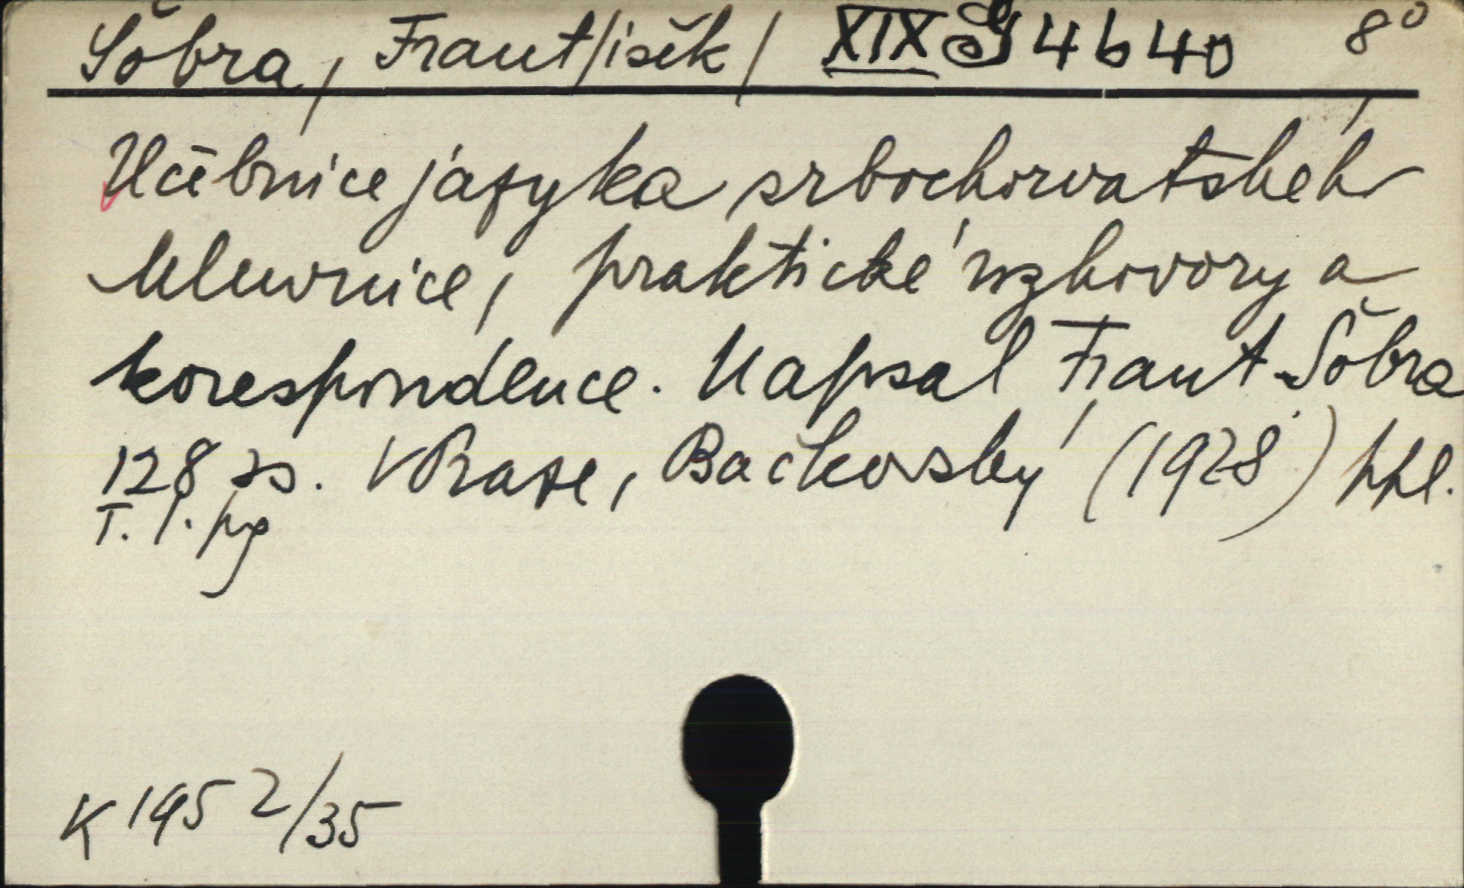 Šobra, Frant/išek/ XIX G 4640 8°
Učebnice jazyka srbochorvatského
Mluvnice, praktické rozhovory a
korespondence. Napsal Frant. Šobra
128 ss. V Praze, Bačkovský (1928) ppl.
T. l. pg
K 1952/35